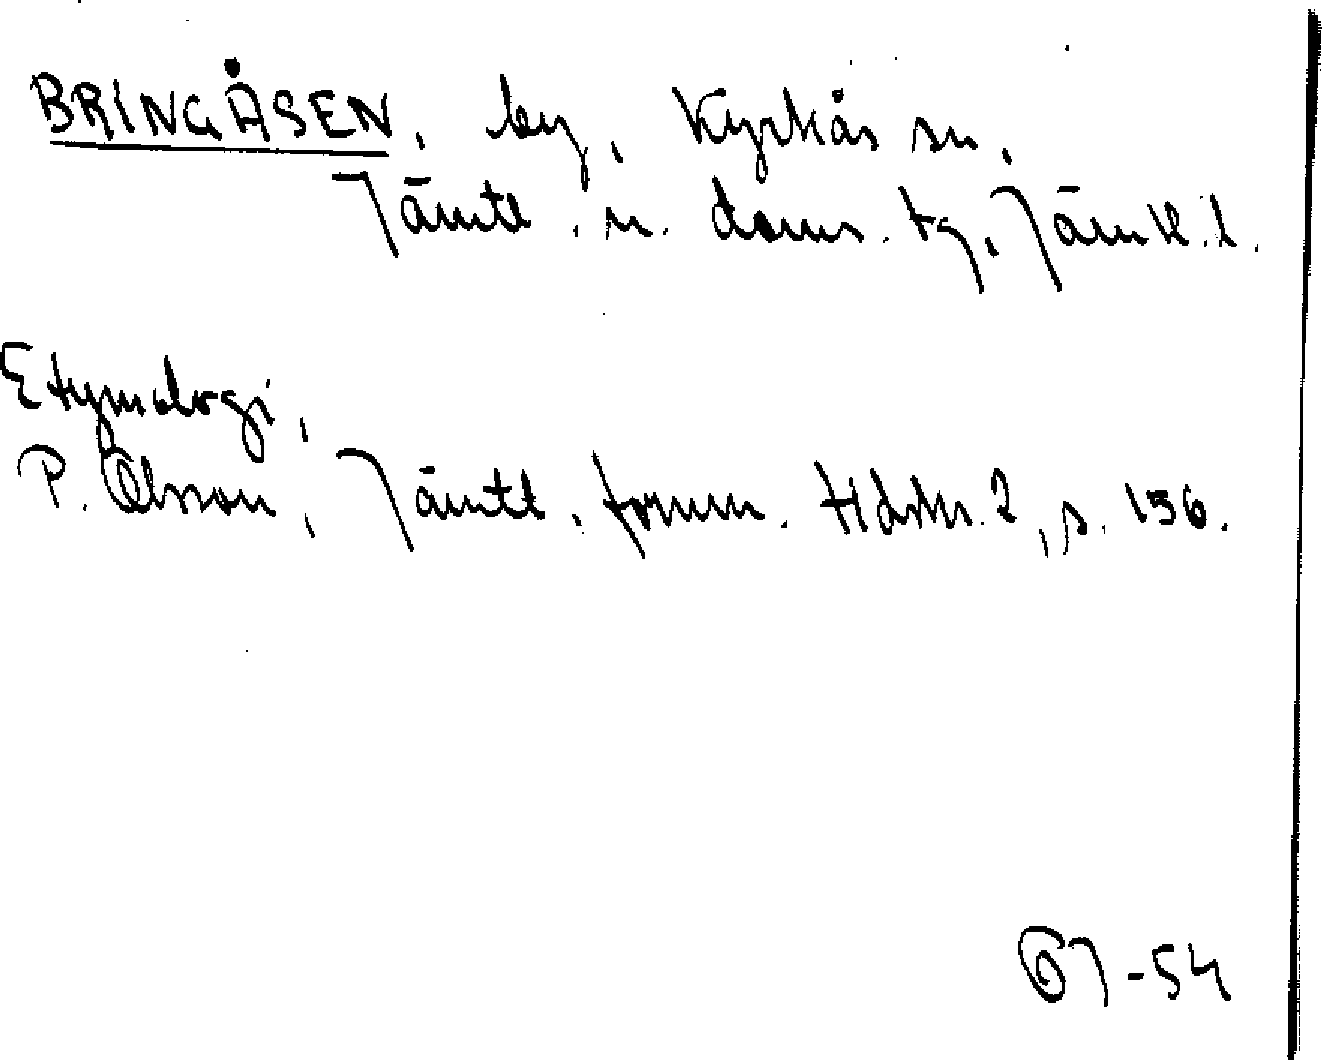 BRINGÅSEN, by, Kyrkås sn,
Jämtl. n. doms. tg, Jämtl. l.
Etymologi,
P. Olsson, Jämtl. fornm. Hdskr. 2, s. 156.
GJ-54